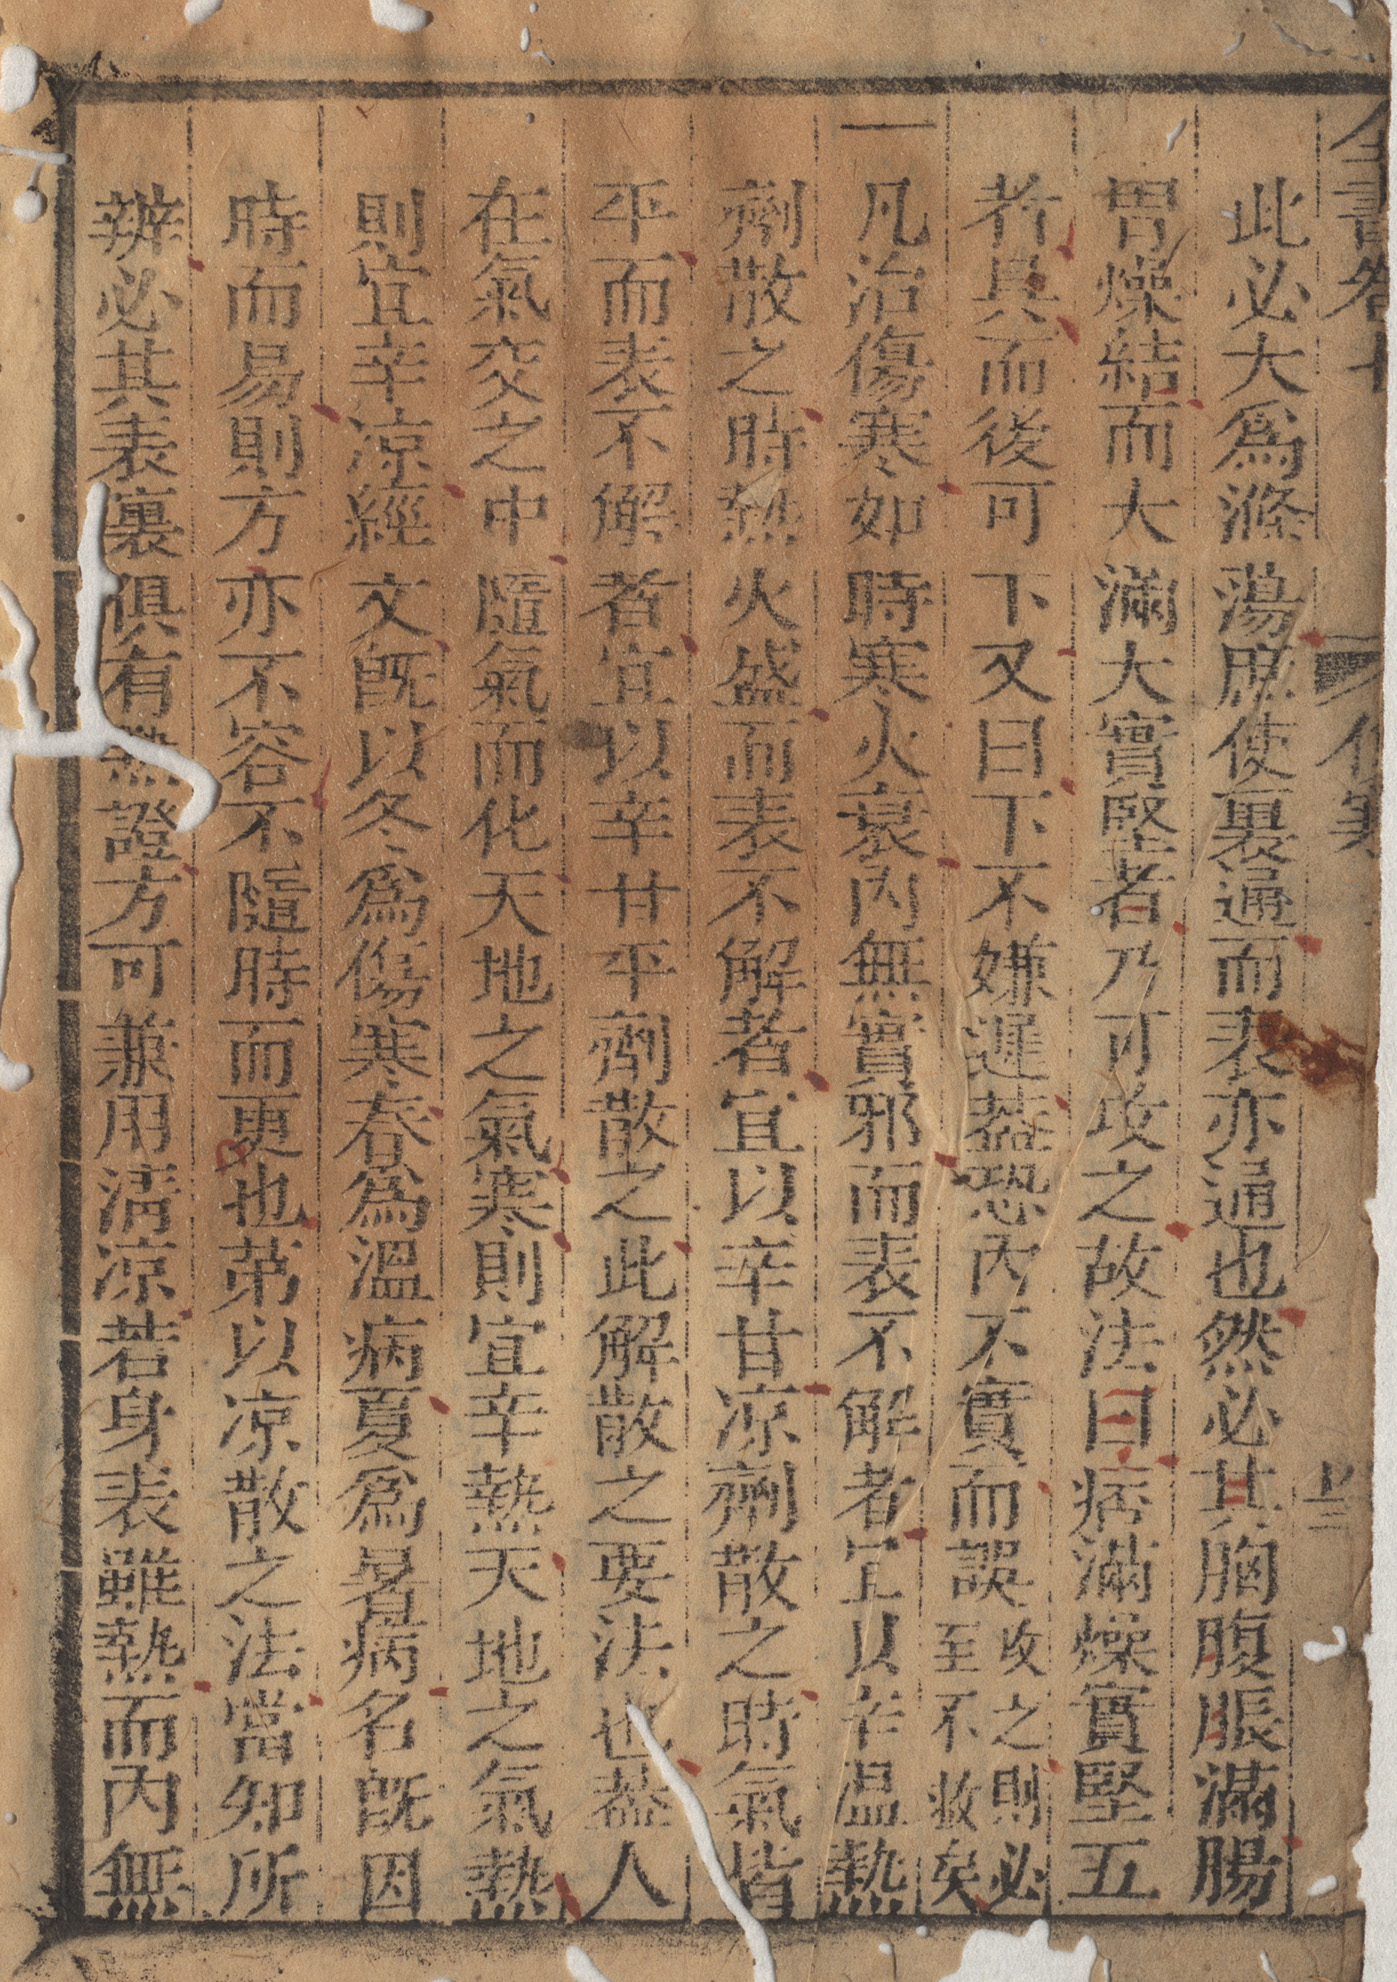 全書卷七 傷寒 十三
此必大爲滌蕩庶使裏通而表亦通也然必其胸腹脹滿腸
胃燥結而大滿大實堅者乃可攻之故法曰痞滿燥實堅五
者具而後可下又曰下不嫌遲葢恐內不實而誤攻之則必至不救矣
一凡治傷寒如時寒火衰內無實邪而表不解者宜以辛温熱
劑散之時熱火盛而表不解者宜以辛甘凉劑散之時氣皆
平而表不解者宜以辛甘平劑散之此解散之要法也葢人
在氣交之中隨氣而化天地之氣寒則宜辛熱天地之氣熱
則宜辛凉經文旣以冬爲傷寒春爲溫病夏爲暑病名旣因
時而易則方亦不容不隨時而更也第以凉散之法當知所
辨必其表裏俱有熱證方可兼用清凉若身表雖熱而內無